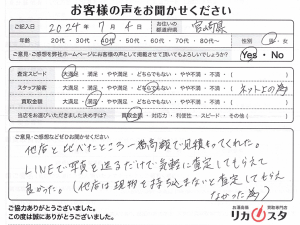 お客様の声をお聞かせください
ご記入日 2024年7月4日 お住いの都道府県 宮崎県
年齢 20代・30代・40代・50代・60代・70代・80代〜 性別 男・女
ご意見・ご感想を弊社ホームページにお客様の声として掲載させて頂いてもよろしいでしょうか? Yes・No
査定スピード 大満足・満足・やや満足・どちらでもない・やや不満・不満
スタッフ接客 大満足・満足・やや満足・どちらでもない・やや不満・不満 ネット上の為
買取金額 大満足・満足・やや満足・どちらでもない・やや不満・不満
当店をお選びいただきました決め手は? 買取金額・対応力・利便性・スピード・その他
ご意見・ご感想などぜひお聞かせください。
他店と比べたところ一番高額で見積もってくれた。
LINEで写真を送るだけで気軽に査定してもらえて
良かった。(他店は現物を持ち込まないと査定してもらえ
なかった為)
ご協力ありがとうございました。
この度は誠にありがとうございました。
お酒買取専門店
リカスタ